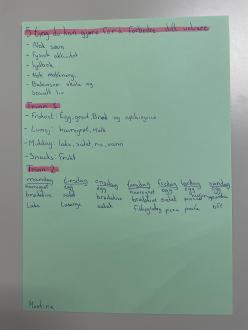 5 ting du kan gjøre for å forbedre ditt velvære
- Nok søvn
- Fysisk aktivitet
- Lydbok
- Nok
- Balansere skole og sosialt liv
Trinn 1
- Frokost: Egg, grøt, Brød og
- Lunsj: havregrøt, Melk
- Middag: laks, salat, ris, vann
- Snacks: Frukt
Trinn 2
mandag tirsdag onsdag torsdag fredag lørdag søndag
havregrøt egg egg havregrøt egg egg egg
brødskive salat brødskive brødskive salat
Laks Lasagne salat pizza pasta
Martine